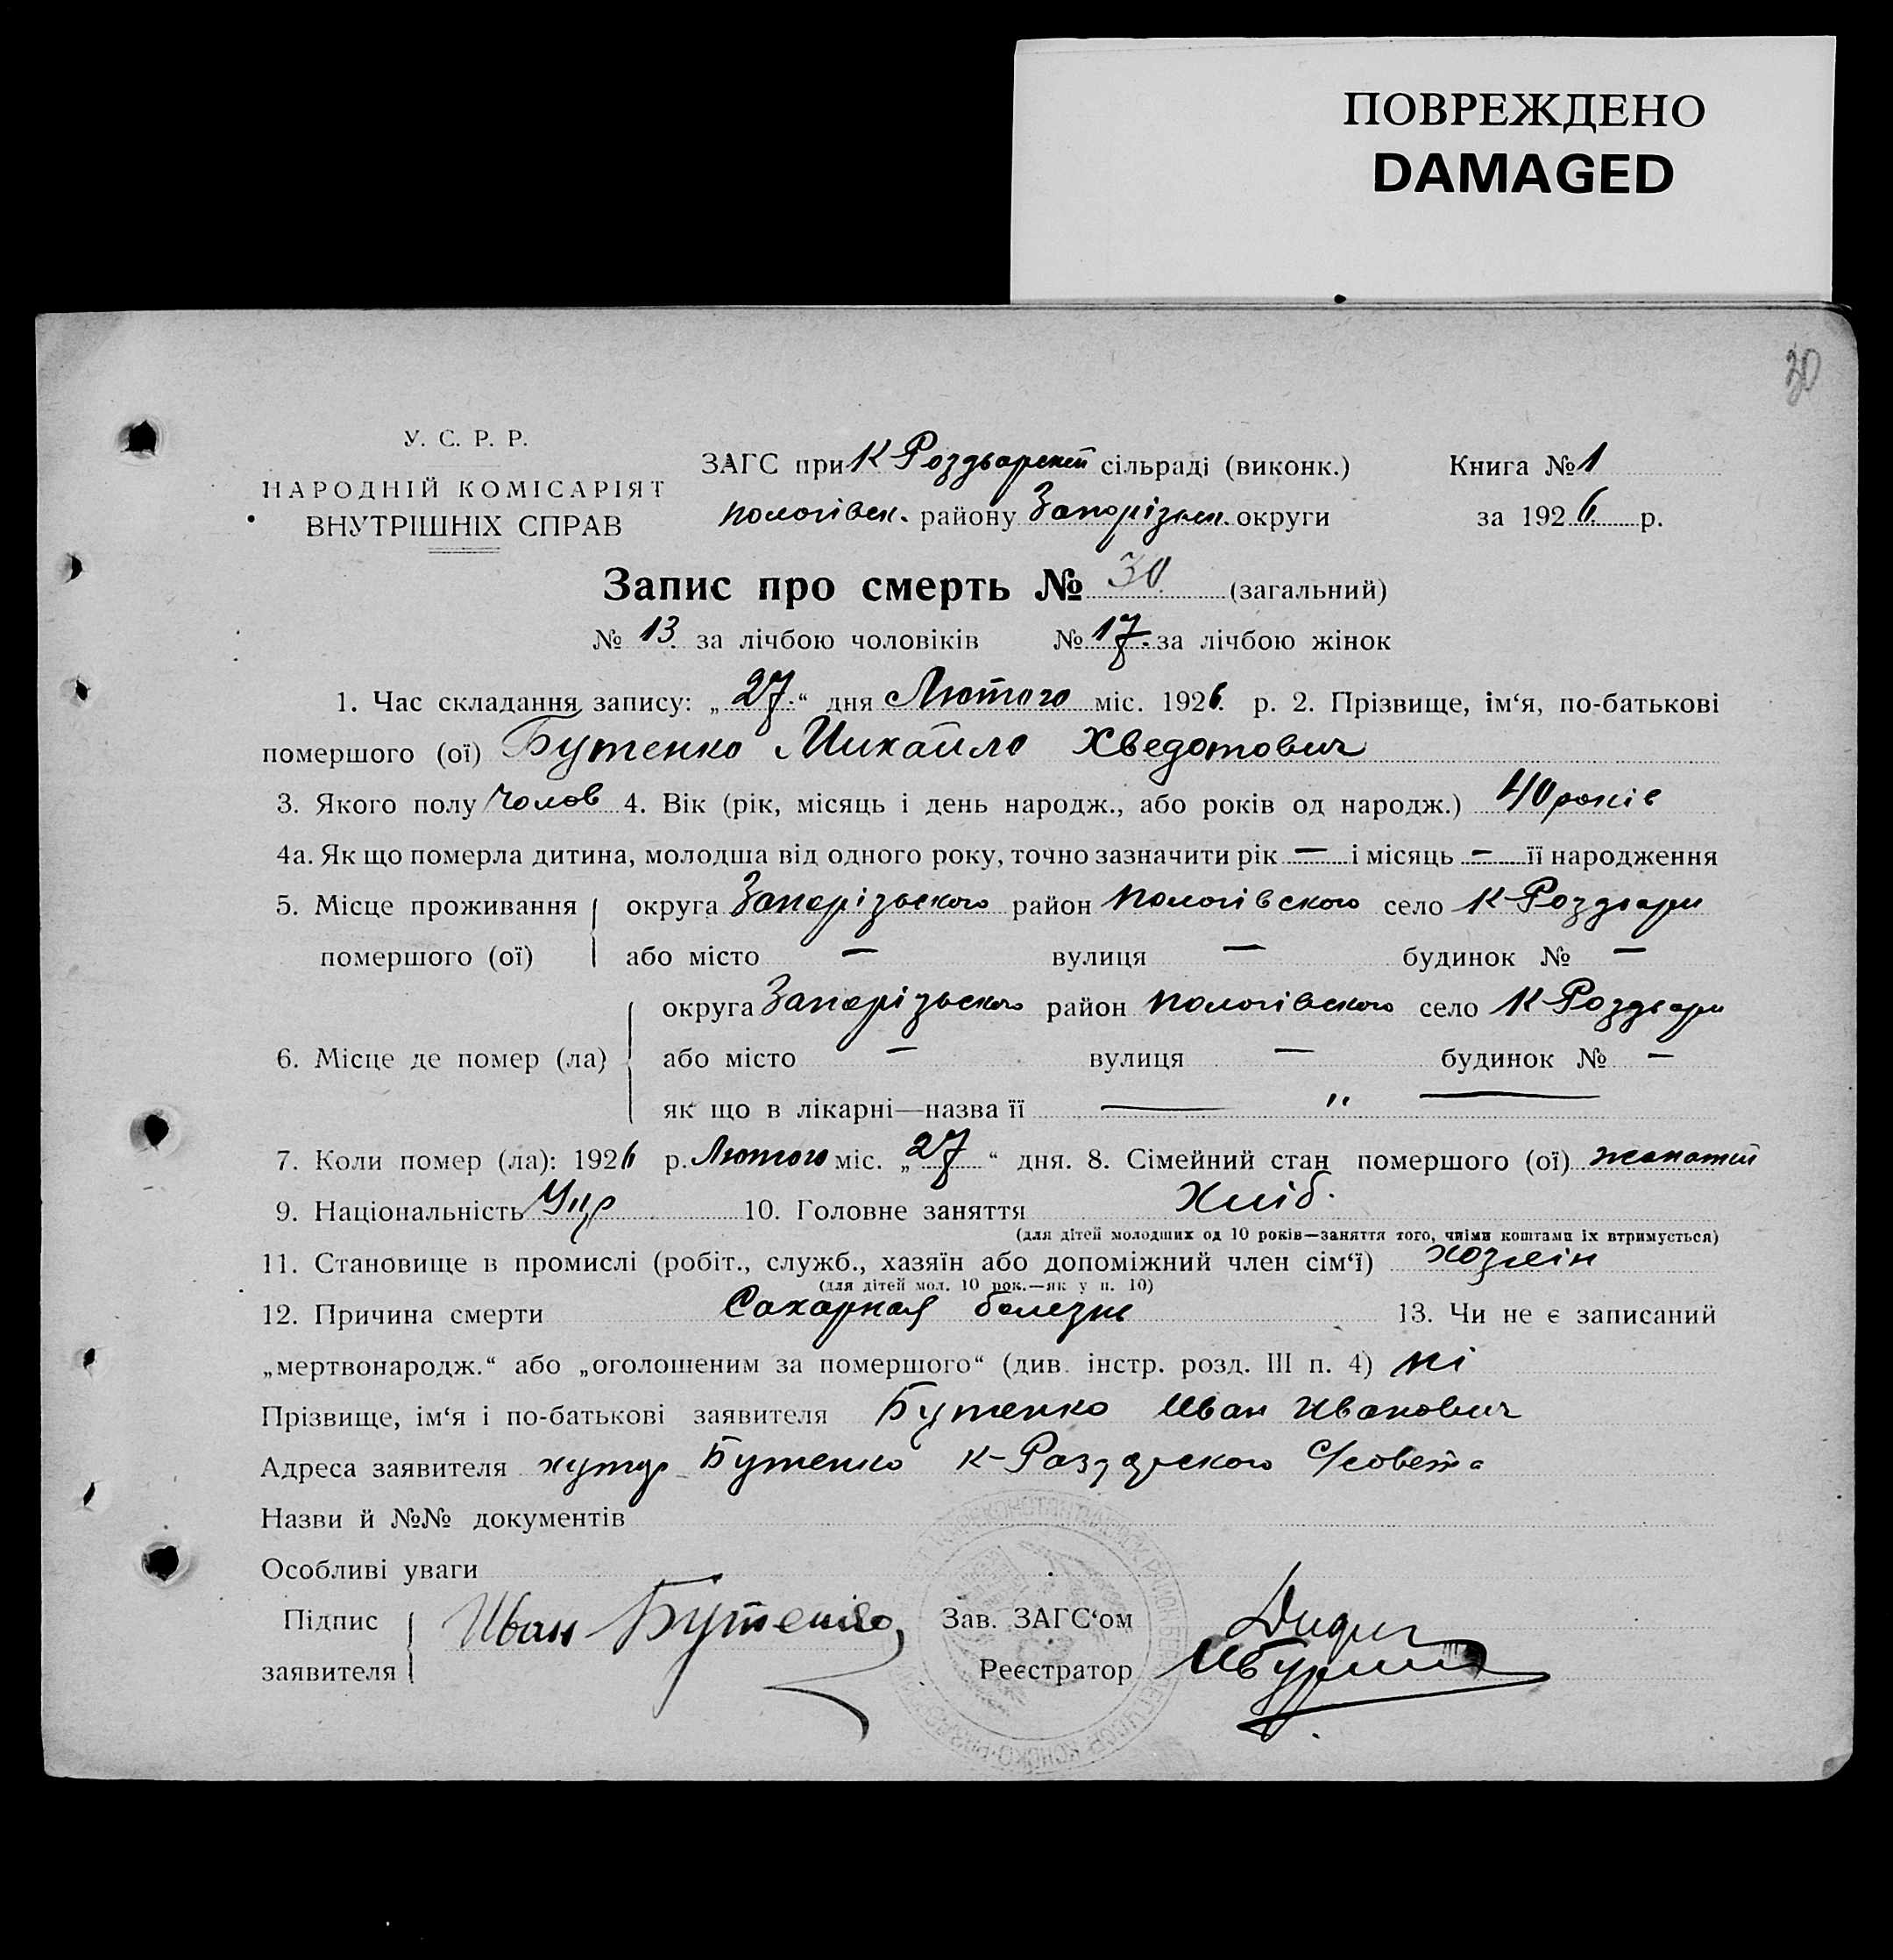 ПОВРЕЖДЕНО
DAMAGED
30
У. С. Р. Р.
НАРОДНІЙ КОМІСАРІЯТ
ВНУТРІШНІХ СПРАВ
ЗАГС при К Роздьорскій сільраді (виконк.)
Пологівск. району Запорізьк. округи
Книга № 1
за 1926 р.
Запис про смерть № 30 (загальний)
№ 13 за лічбою чоловіків № 17. за лічбою жінок
1. Час складання запису: „27.“ дня Лютого міс. 1926. р. 2. Прізвище, ім‘я, по-батькові
помершого (ої) Бутенко Михайло Хведотович
3. Якого полу Чолов 4. Вік (рік, місяць і день народж., або років од народж.) 40 років
4а. Як що померла дитина, молодша від одного року, точно зазначити рік — і місяць — її народження
5. Місце проживання помершого (ої)
округа Запорізьского район Пологівского село К Роздьори
або місто — вулиця — будинок № —
6. Місце де помер (ла)
округа Запорізьского район Пологівского село К Роздьори
або місто — вулиця — будинок № —
як що в лікарні—назва її — " —
7. Коли помер (ла): 1926 р. Лютого міс. „27“ дня. 8. Сімейний стан помершого (ої) жонатий
9. Національність Укр 10. Головне заняття Хліб.
(для дітей молодших од 10 років—заняття того, чиїми коштами їх втримується)
11. Становище в промислі (робіт., служб., хазяїн або допоміжний член сім‘ї) хозяїн
(для дітей мол. 10 рок.—як у п. 10)
12. Причина смерти Сахарная болезнь 13. Чи не є записаний
„мертвонародж.“ або „оголошеним за помершого“ (див. інстр. розд. III п. 4) ні
Прізвище, ім‘я і по-батькові заявителя Бутенко Иван Иванович
Адреса заявителя хутор Бутенко К-Раздорского С/совета
Назви й №№ документів
Особливі уваги
Підпис заявителя Иван Бутенко
Зав. ЗАГС‘ом
Реєстратор